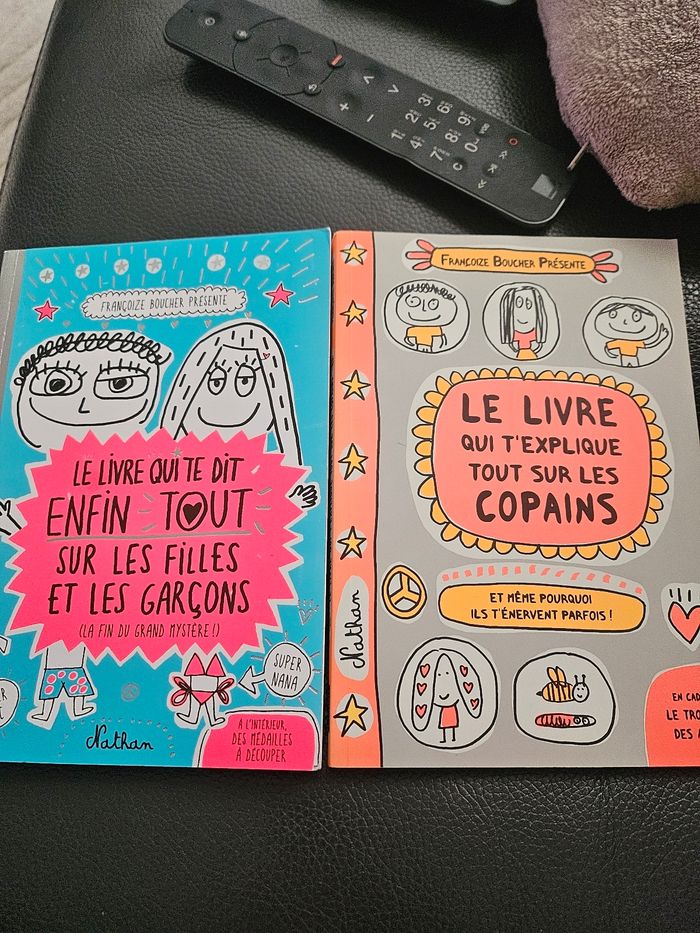 FRANÇOIZE BOUCHER PRÉSENTE
LE LIVRE QUI TE DIT
ENFIN TOUT
SUR LES FILLES
ET LES GARÇONS
(LA FIN DU GRAND MYSTÈRE !)
SUPER
NANA
Nathan
A L'INTÉRIEUR,
DES MÉDAILLES
À DÉCOUPER
FRANÇOIZE BOUCHER PRÉSENTE
LE LIVRE
QUI T'EXPLIQUE
TOUT SUR LES
COPAINS
ET MÊME POURQUOI
ILS T'ÉNERVENT PARFOIS !
Nathan
EN CAD
LE TRO
DES
1 2 3
4 5 6
7 8 9
C 0